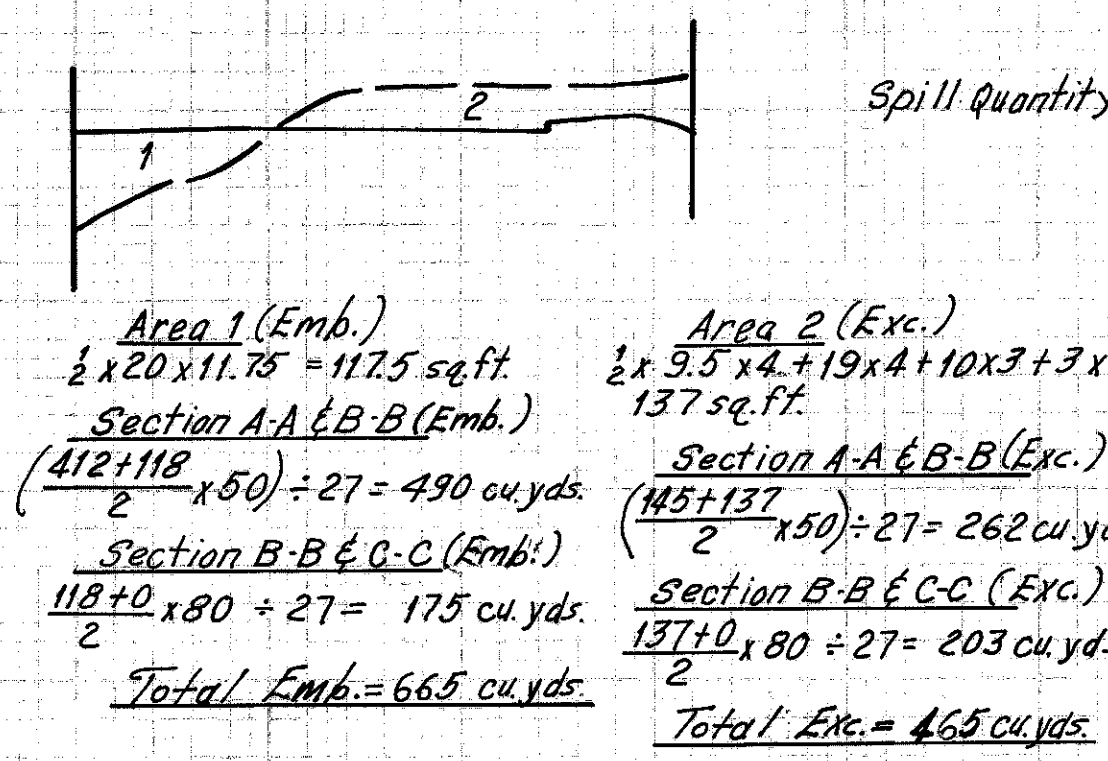 Spill Quantity
1
2
Area 1 (Emb.)
½ x 20 x 11.75 = 117.5 sq.ft.
Section A-A & B-B (Emb.)
(412+118/2 x 50) ÷ 27 = 490 cu.yds.
Section B-B & C-C (Emb.)
118+0/2 x 80 ÷ 27 = 175 cu.yds.
Total Emb. = 665 cu.yds.
Area 2 (Exc.)
½ x 9.5 x 4 + 19 x 4 + 10 x 3 + 3 x
137 sq.ft.
Section A-A & B-B (Exc.)
(145+137/2 x 50) ÷ 27 = 262 cu.yd
Section B-B & C-C (Exc.)
137+0/2 x 80 ÷ 27 = 203 cu.yd
Total Exc. = 465 cu.yds.